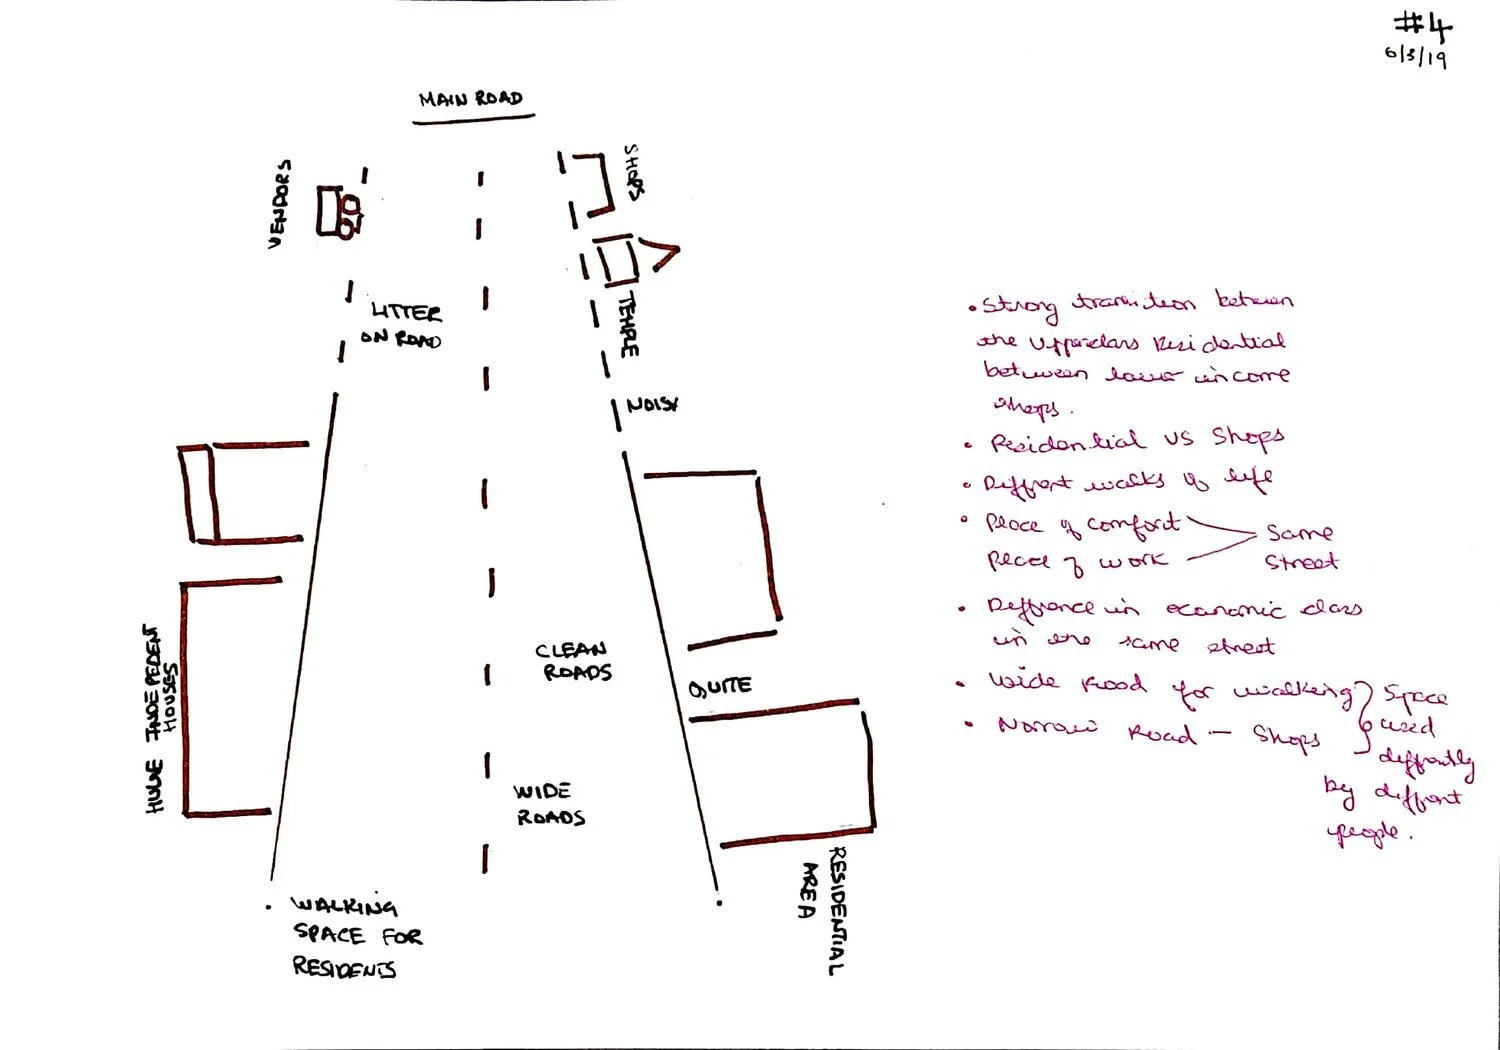 #4
6/3/19
MAIN ROAD
VENDORS
SHOPS
LITTER
ON ROAD
TEMPLE
NOISY
HUGE INDEPEDENT
HOUSES
CLEAN
ROADS
QUITE
WIDE
ROADS
RESIDENTIAL
AREA
• WALKING
SPACE FOR
RESIDENTS
• Strong transition between
the Upperclass Residential
between lower income
shops.
• Residential VS Shops
• Diffrent walks of life
• Place of comfort
Place of work
Same
Street
• Diffrence in economic class
in the same street
• Wide Road for walking
• Narrow Road - Shops
Space
used
diffrently
by diffrent
people.